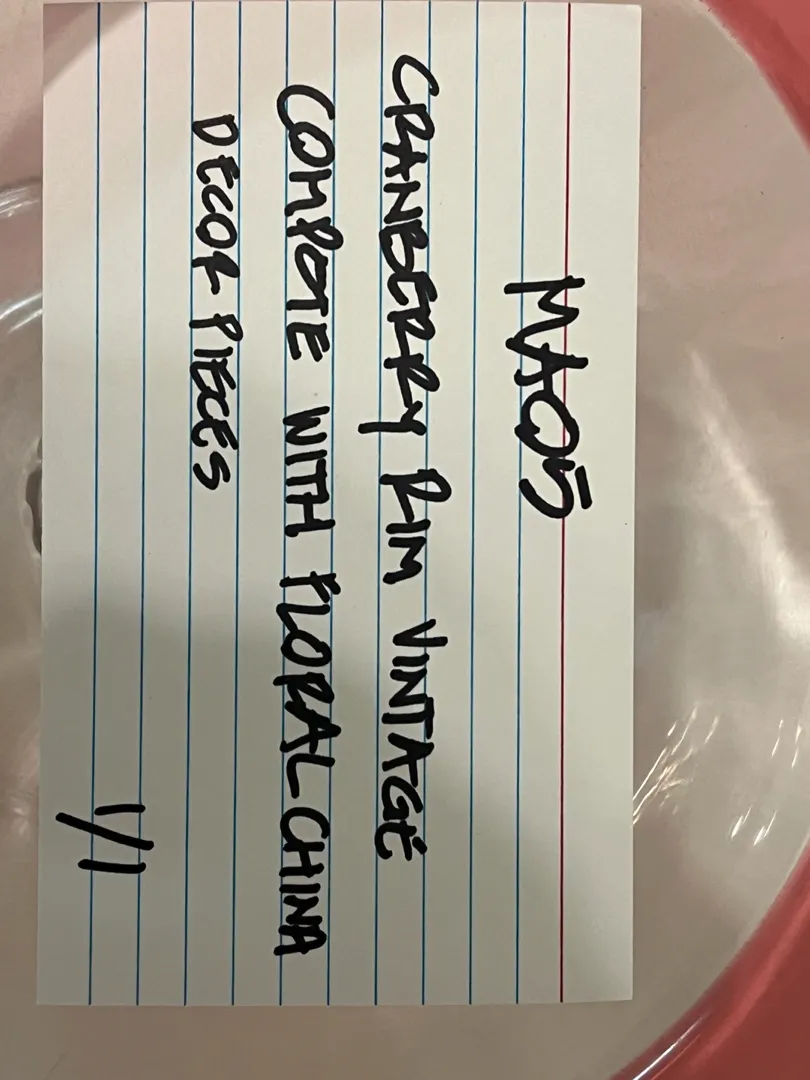 MA05
CRANBERRY RIM VINTAGE
COMPOTE WITH FLORAL CHINA
DECOR PIECES
1/1